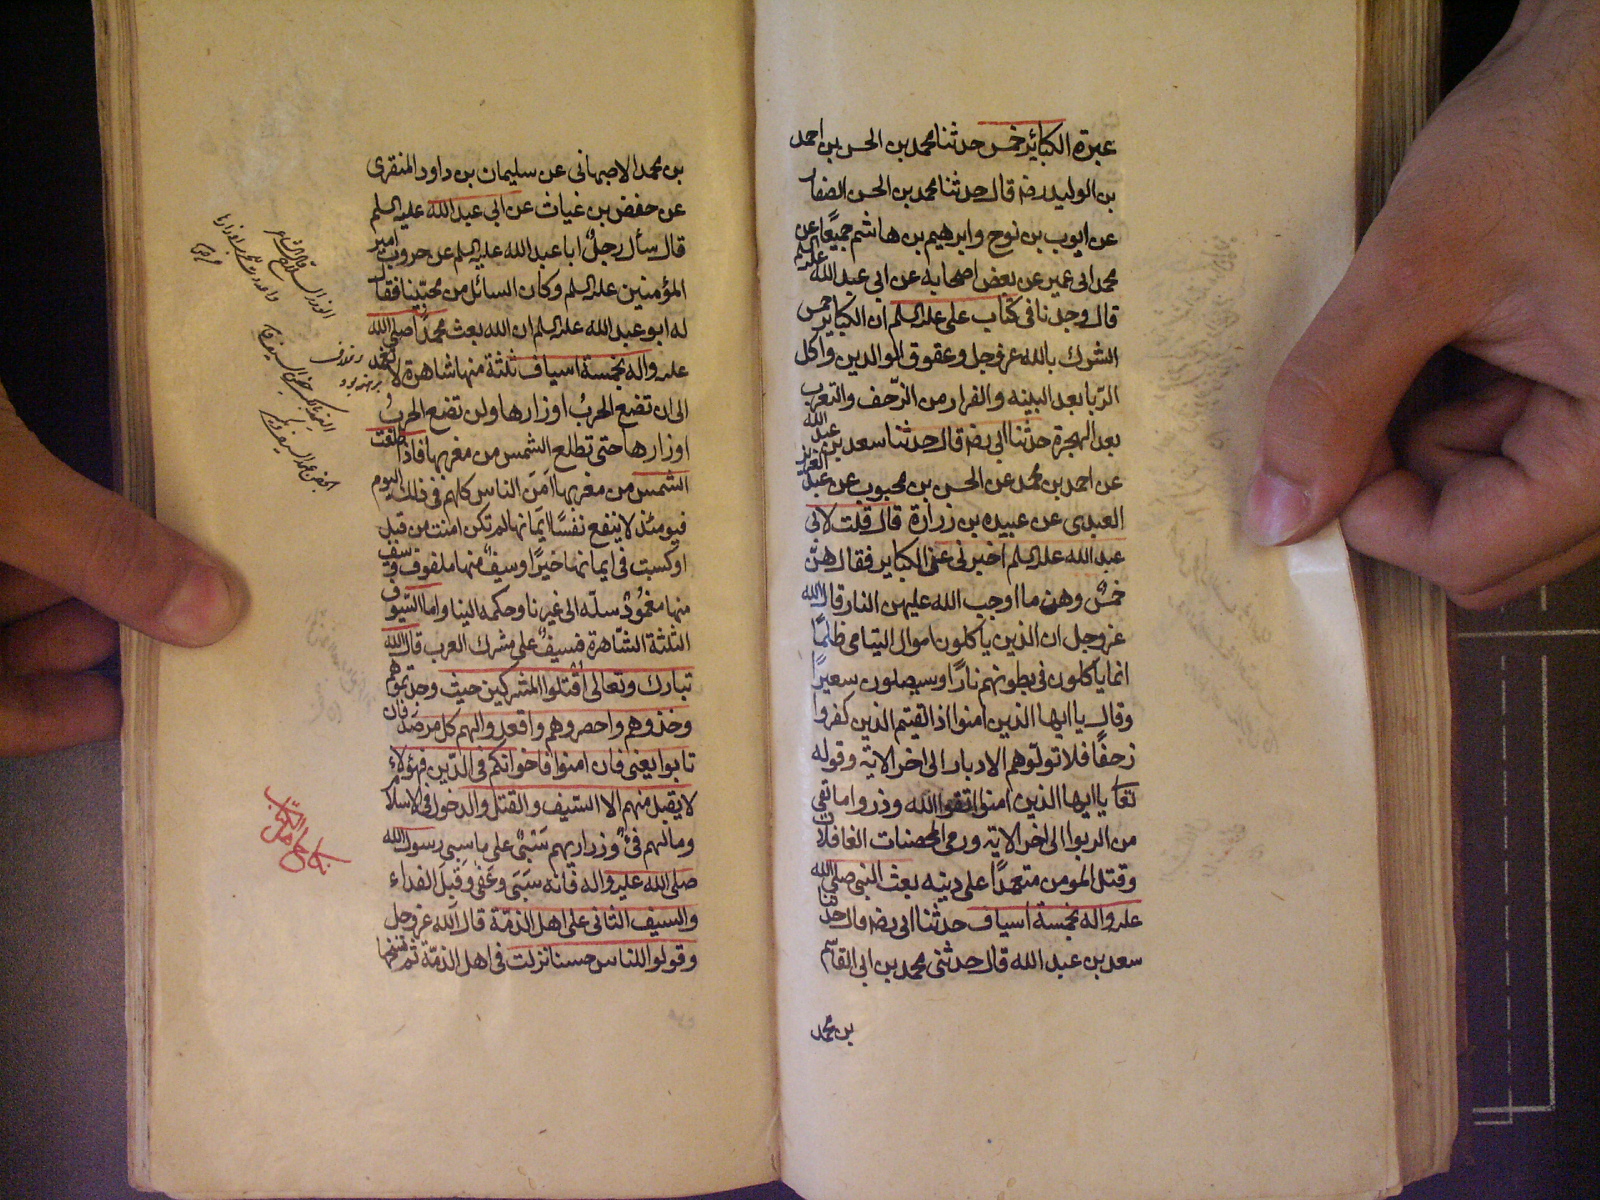 عبرة الكبائر خمس حدثنا محمد بن الحسن بن احمد
بن الوليد رضه قال حدثنا محمد بن الحسن الصفار
عن ايوب بن نوح وابرهيم بن هاشم جميعًا عن
محمد ابى عمير عن بعض اصحابه عن ابى عبد الله عليه السلم
قال وجدنا فى كتاب على عليه السلم ان الكباير خمس
الشرك بالله عز وجل وعقوق الوالدين واكل
الرّبا بعد البينه والفرار من الزّحف والتعرب
بعد الهجرة حدثنا ابى رضه قال حدثنا سعد بن عبد الله
عن احمد بن محمد عن الحسن بن محبوب عن عبد العزيز
العبدى عن عبيده بن زرارة قال قلت لابى
عبد الله عليه السلم اخبرنى عن الكباير فقال هنّ
خمسٌ وهن ما اوجب الله عليهن النار قال الله
عز وجل ان الذين ياكلون اموال اليتامى ظلمًا
انما ياكلون فى بطونهم نارًا وسيصلون سعيرًا
وقال يا ايها الذين امنوا اذا لقيتم الذين كفروا
زحفًا فلا تولّوهم الادبار الى اخر الاية وقوله
تعا يا ايها الذين امنوا اتقوا الله وذروا ما بقى
من الربوا الى اخر الاية ورمى المحصنات الغافلات
وقتل المومن متعمدًا على دينه بعث النبى صلى الله
عليه واله بخمسة اسياف حدثنا ابى رضه قال حدثنا
سعد بن عبد الله قال حدثنى محمد بن ابى القاسم
بن محمد
بن محمد الاصبهانى عن سليمان بن داود المنقرى
عن حفص بن غياث عن ابى عبد الله عليه السلم
قال سأل رجلٌ ابا عبد الله عليه السلم عن حروب امير
المؤمنين عليه السلم وكان السائل من محبّينا فقال
له ابو عبد الله عليه السلم ان الله بعث محمدًا صلى الله
عليه واله بخمسة اسياف ثلثة منها شاهرة لا تغمد
الى ان تضع الحربُ اوزارها ولن تضع الحربُ
اوزارها حتى تطلع الشمس من مغربها فاذا طلعت
الشمس من مغربها اَمَنَ الناس كلهم فى ذلك اليوم
فيومئذ لا ينفع نفسًا ايمانها لم تكن امنت من قبل
او كسبت فى ايمانها خيرًا وسيفٌ منها ملفوف وسيف
منها مغمُودٌ سلّه الى غيرنا وحكمه الينا واما السّيوف
الثلثة الشّاهرة فسيفٌ على مشرك العرب قال الله
تبارك وتعالى اقْتلوا المشركين حيث وجدتموهم
وخذوهم واحصروهم واقعدوا لهم كل مرصد فان
تابوا يعنى فان امنوا فاخوانكم فى الدّين فهؤلاءِ
لا يقبل منهم الا السّيف والقتل والدخول فى الاسلام
وما لهم فئٌ وزراريهم سَبْىٌ على ما سبى رسول الله
صلى الله عليه واله فانه سَبَىَ وعَفَى وقَبِلَ الفداء
والسيف الثانى على اهل الذمّة قال الله عز وجل
وقولوا للناس حسنا نزلت فى اهل الذمّة ثم نسخها